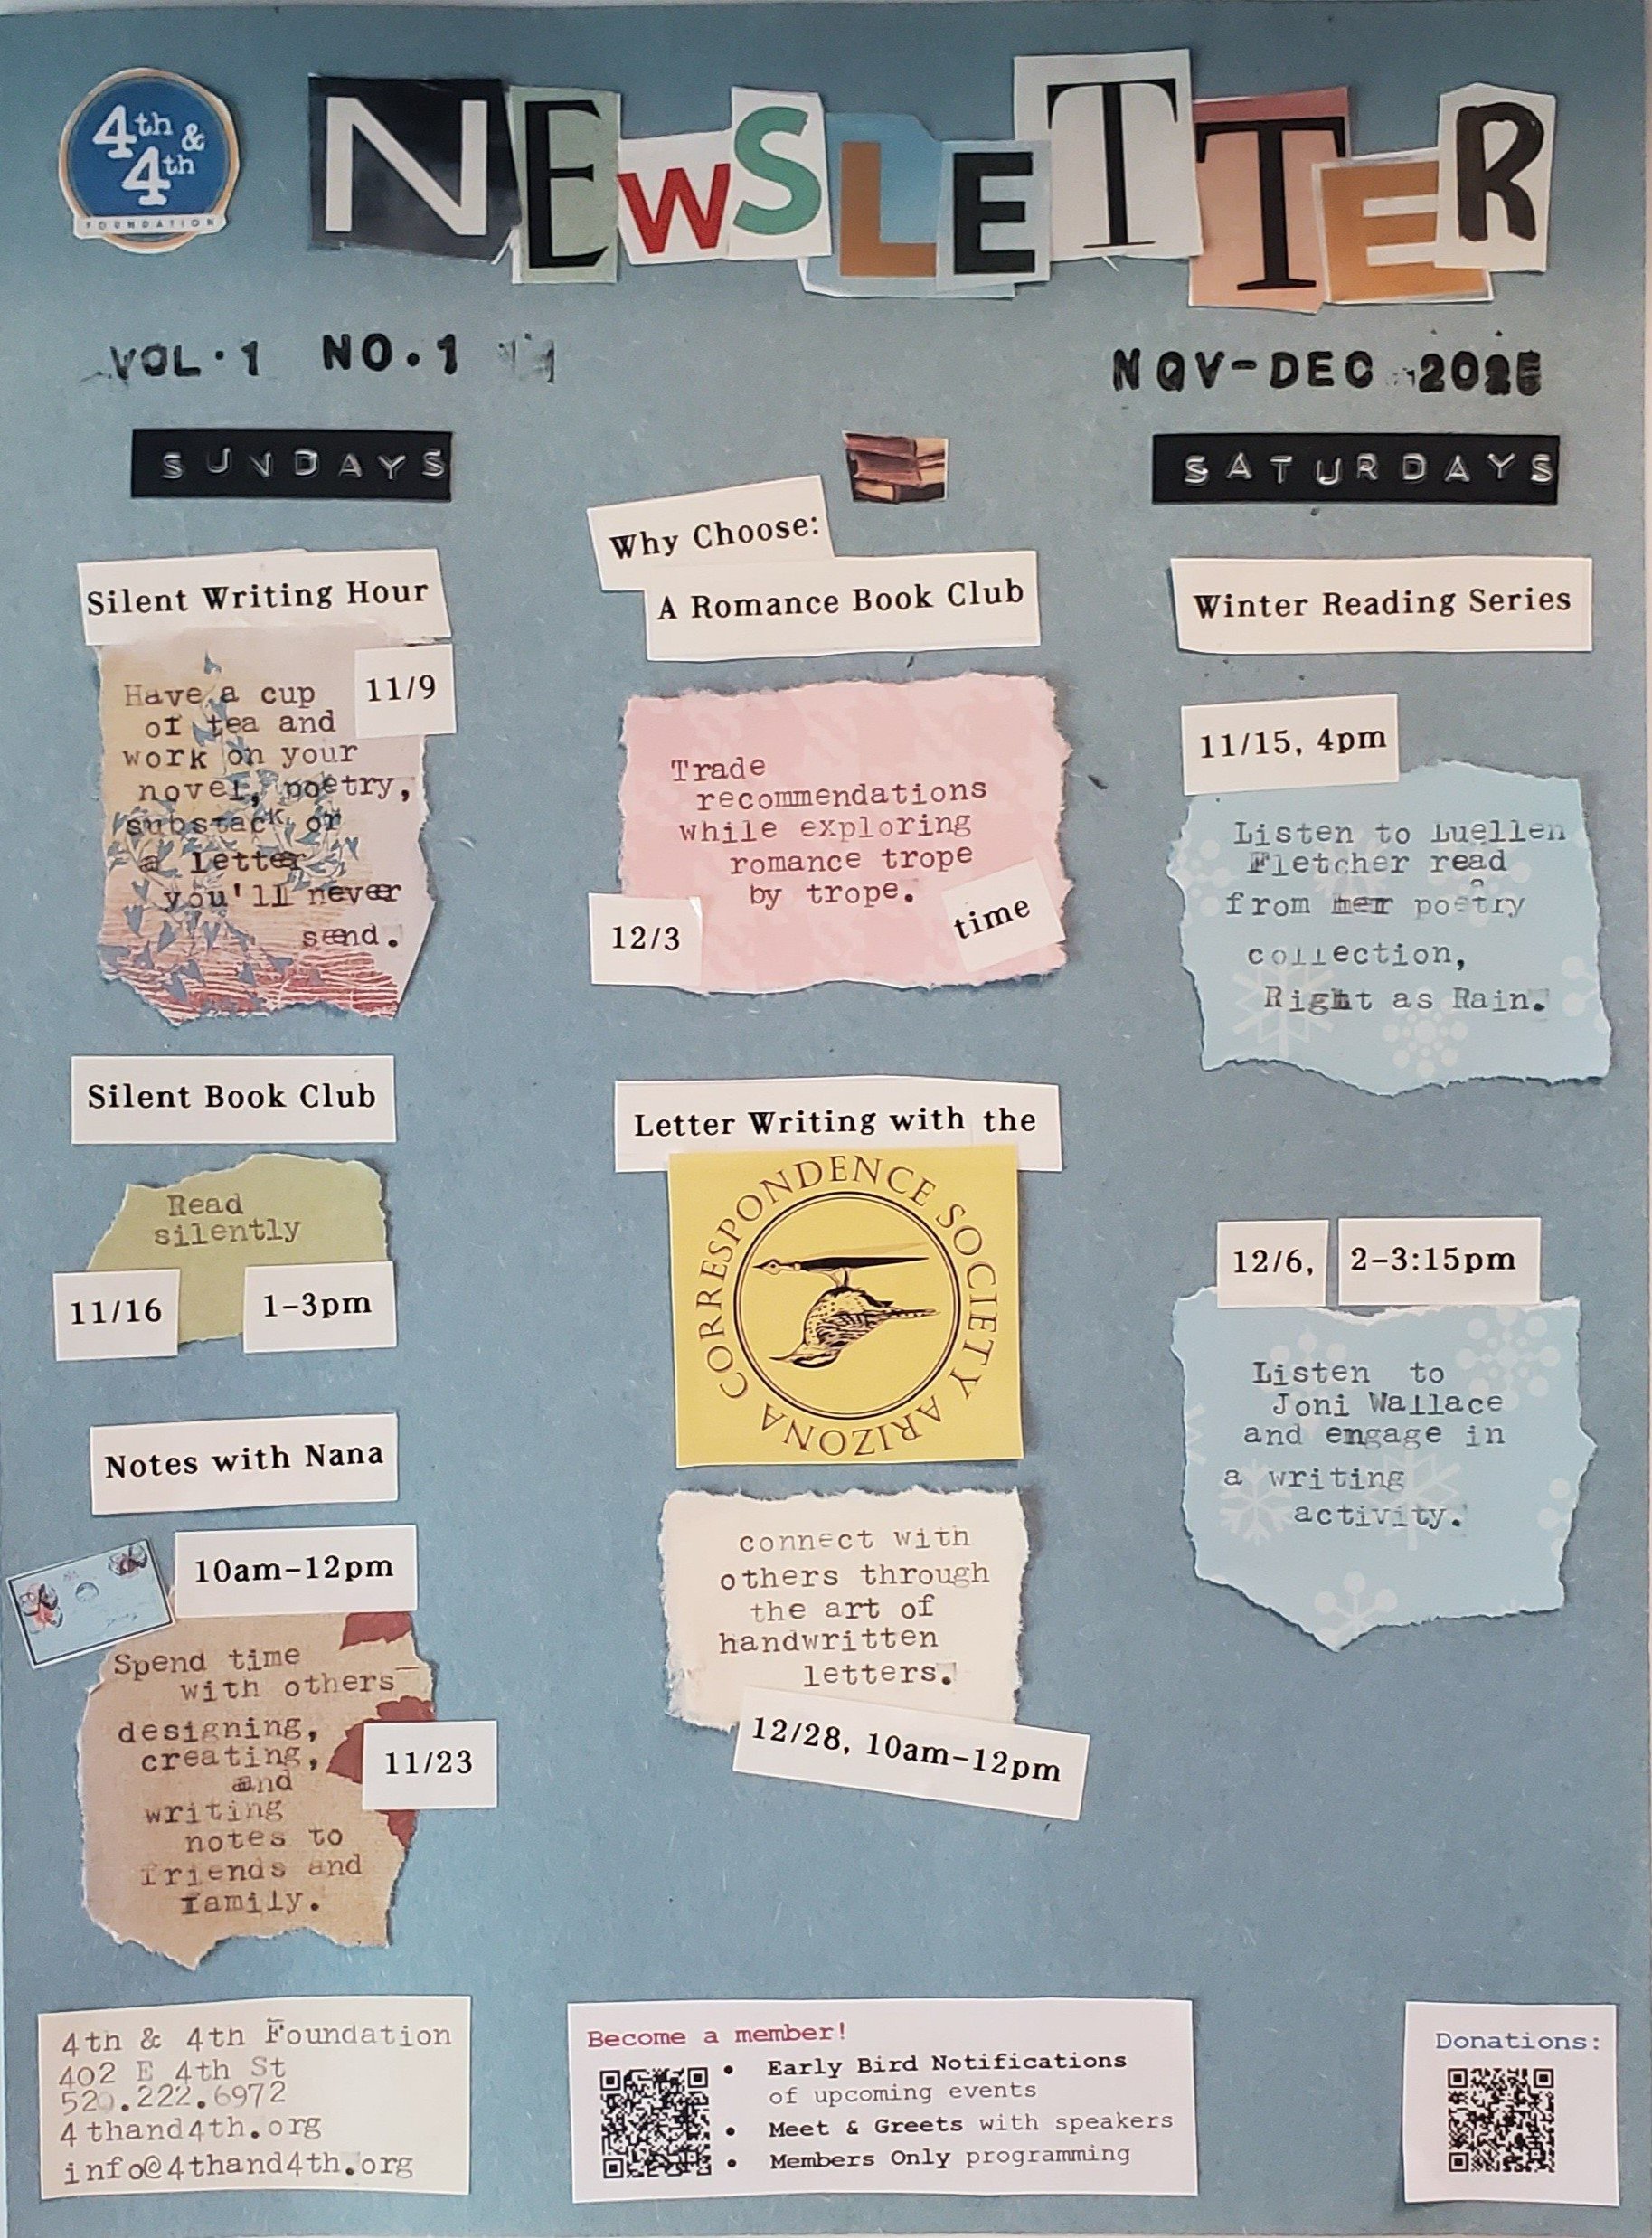 4th &
4th
FOUNDATION
NEWSLETTER
VOL.1 NO.1
NOV-DEC 2025
SUNDAYS
Silent Writing Hour
11/9
Have a cup
of tea and
work on your
novel, poetry,
substack or
a letter
you'll never
send.
Silent Book Club
Read
silently
11/16
1-3pm
Notes with Nana
10am-12pm
Spend time
with others
designing,
creating,
and
writing
notes to
friends and
family.
11/23
Why Choose:
A Romance Book Club
Trade
recommendations
while exploring
romance trope
by trope.
12/3
time
Letter Writing with the
CORRESPONDENCE SOCIETY ARIZONA
connect with
others through
the art of
handwritten
letters.
12/28, 10am-12pm
SATURDAYS
Winter Reading Series
11/15, 4pm
Listen to Luellen
Fletcher read
from her poetry
collection,
Right as Rain.
12/6, 2-3:15pm
Listen to
Joni Wallace
and engage in
a writing
activity.
4th & 4th Foundation
402 E 4th St
520.222.6972
4thand4th.org
info@4thand4th.org
Become a member!
• Early Bird Notifications
of upcoming events
• Meet & Greets with speakers
• Members Only programming
Donations: